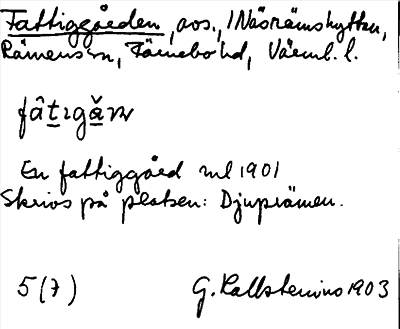 Fattiggården, avs., i Näsrämshyttan,
Rämens sn, Färnebo hd, Värml. l.
En fattiggård ml 1901
Skrivs på platsen: Djuprämen.
5(7) G. Kallstenius 1903